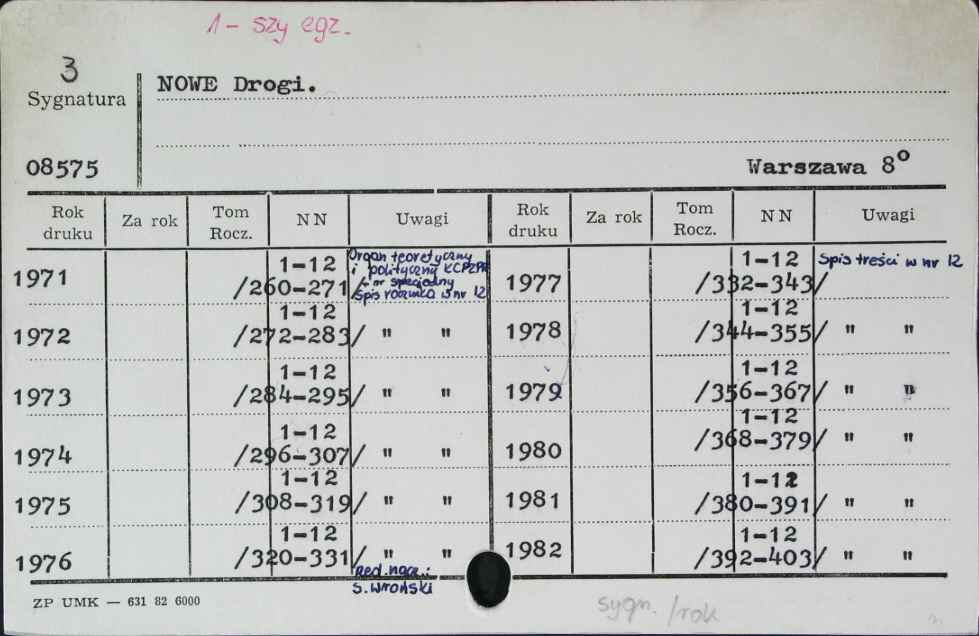 1 - szy egz.
3
Sygnatura
NOWE Drogi.
08575
Warszawa 8°
Rok druku Za rok Tom Rocz. NN Uwagi Rok druku Za rok Tom Rocz. NN Uwagi
1971 1-12 /260-271/ Organ teoretyczny i polityczny KC PZPR + nr specjalny Spis rocznika w nr 12 1977 1-12 /332-343/ Spis treści w nr 12
1972 1-12 /272-283/ " " 1978 1-12 /344-355/ " "
1973 1-12 /284-295/ " " 1979 1-12 /356-367/ " "
1974 1-12 /296-307/ " " 1980 1-12 /368-379/ " "
1975 1-12 /308-319/ " " 1981 1-12 /380-391/ " "
1976 1-12 /320-331/ " " 1982 1-12 /392-403/ " "
Red. nacz.:
S. Wroński
ZP UMK — 631 82 6000
sygn. /rok